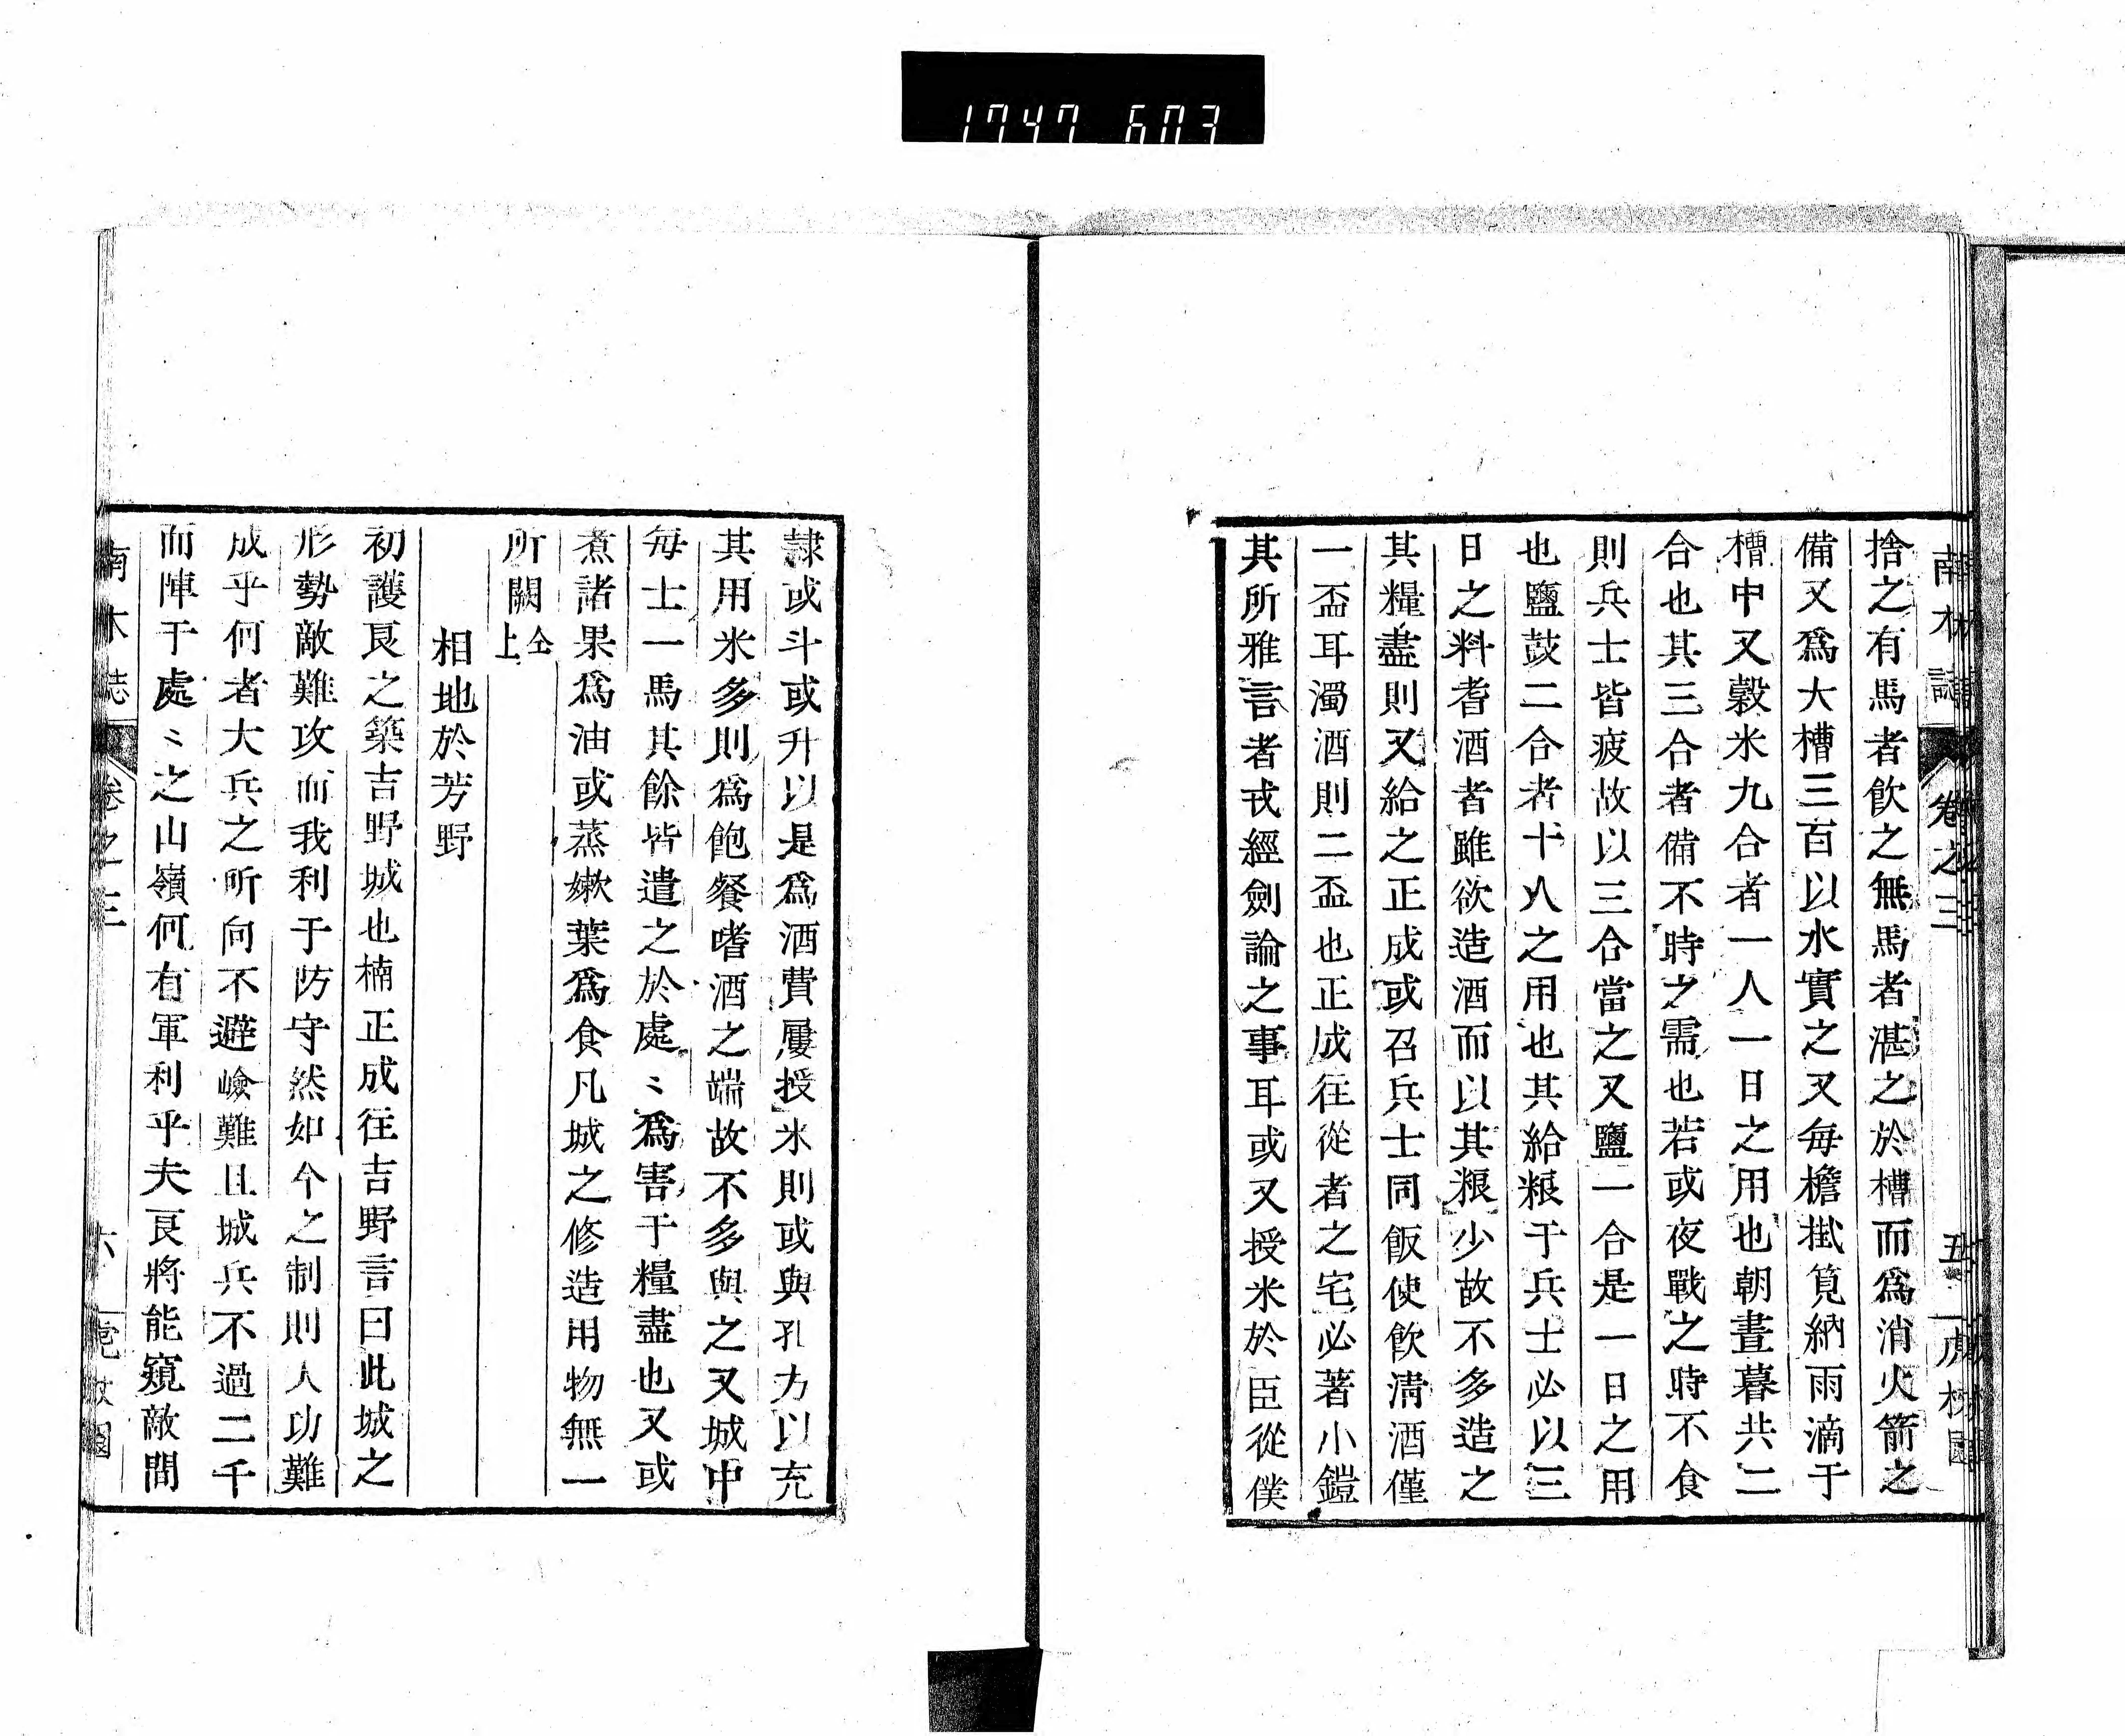 1747 603
南木誌 卷之三 五
捨之有馬者飮之無馬者湛之於槽而爲消火箭之
備又爲大槽三百以水實之又每檐掛筧納雨滴于
槽中又穀米九合者一人一日之用也朝晝暮共二
合也其三合者備不時之需也若或夜戰之時不食
則兵士皆疲故以三合當之又鹽一合是一日之用
也鹽豉二合者十八之用也其給粮于兵士必以三
日之料耆酒者雖欲造酒而以其粮少故不多造之
其糧盡則又給之正成或召兵士同飯使飮淸酒僅
一盃耳濁酒則二盃也正成往從者之宅必著小鎧
其所雅言者戎經劍論之事耳或又授米於臣從僕
隷或斗或升以是爲酒費屢授米則或與孔方以充
其用米多則爲飽餐嗜酒之端故不多與之又城中
每士一馬其餘皆遣之於處〻爲害于糧盡也又或
煮諸果爲油或蒸嫰葉爲食凡城之修造用物無一
所闕仝上
相地於芳野
初護良之築吉野城也楠正成往吉野言曰此城之
形勢敵難攻而我利于防守然如今之制則人功難
成乎何者大兵之所向不避嶮難且城兵不過二千
而陣于處〻之山嶺何有軍利乎夫良將能窺敵間
南木誌 卷之三 六